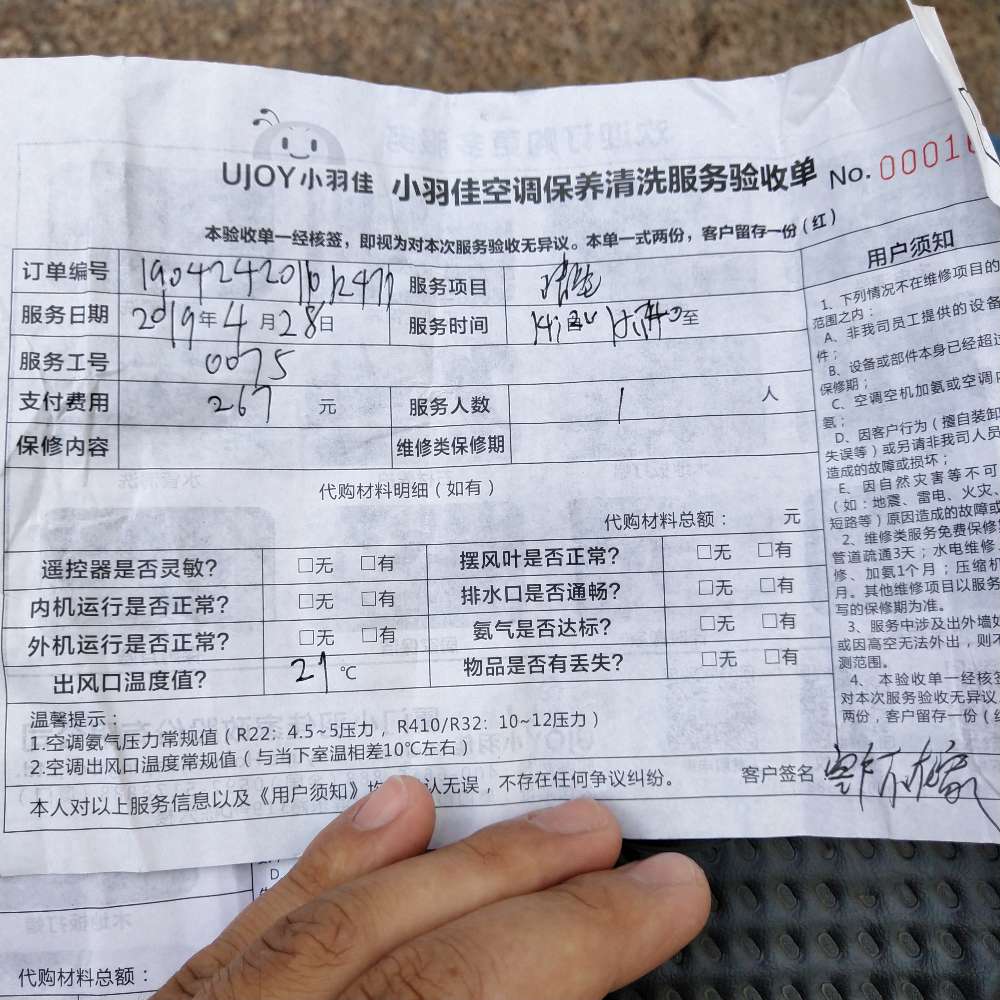 UJOY小羽佳 小羽佳空调保养清洗服务验收单 No. 0001
本验收单一经核签，即视为对本次服务验收无异议。本单一式两份，客户留存一份（红）
订单编号 服务项目
服务日期 2019年4月28日 服务时间 至
服务工号 0075
支付费用 267 元 服务人数 1 人
保修内容 维修类保修期
代购材料明细（如有）
代购材料总额： 元
遥控器是否灵敏？ □无 □有 摆风叶是否正常？ □无 □有
内机运行是否正常？ □无 □有 排水口是否通畅？ □无 □有
外机运行是否正常？ □无 □有 氨气是否达标？ □无 □有
出风口温度值？ 21 ℃ 物品是否有丢失？ □无 □有
温馨提示：
1.空调氨气压力常规值（R22：4.5~5压力，R410/R32：10~12压力）
2.空调出风口温度常规值（与当下室温相差10℃左右）
本人对以上服务信息以及《用户须知》 认无误，不存在任何争议纠纷。 客户签名
用户须知
1、下列情况不在维修项目的
范围之内：
A、非我司员工提供的设备
件；
B、设备或部件本身已经超过
保修期；
C、空调空机加氨或空调内
氨；
D、因客户行为（擅自装卸
失误等）或另请非我司人员
造成的故障或损坏；
E、因自然灾害等不可
（如：地震、雷电、火灾、
短路等）原因造成的故障或
2、维修类服务免费保修
管道疏通3天；水电维修
修、加氨1个月；压缩机
月。其他维修项目以服务
写的保修期为准。
3、服务中涉及出外墙如
或因高空无法外出，则不
测范围。
4、本验收单一经核签
对本次服务验收无异议
两份，客户留存一份（
D
代购材料总额：